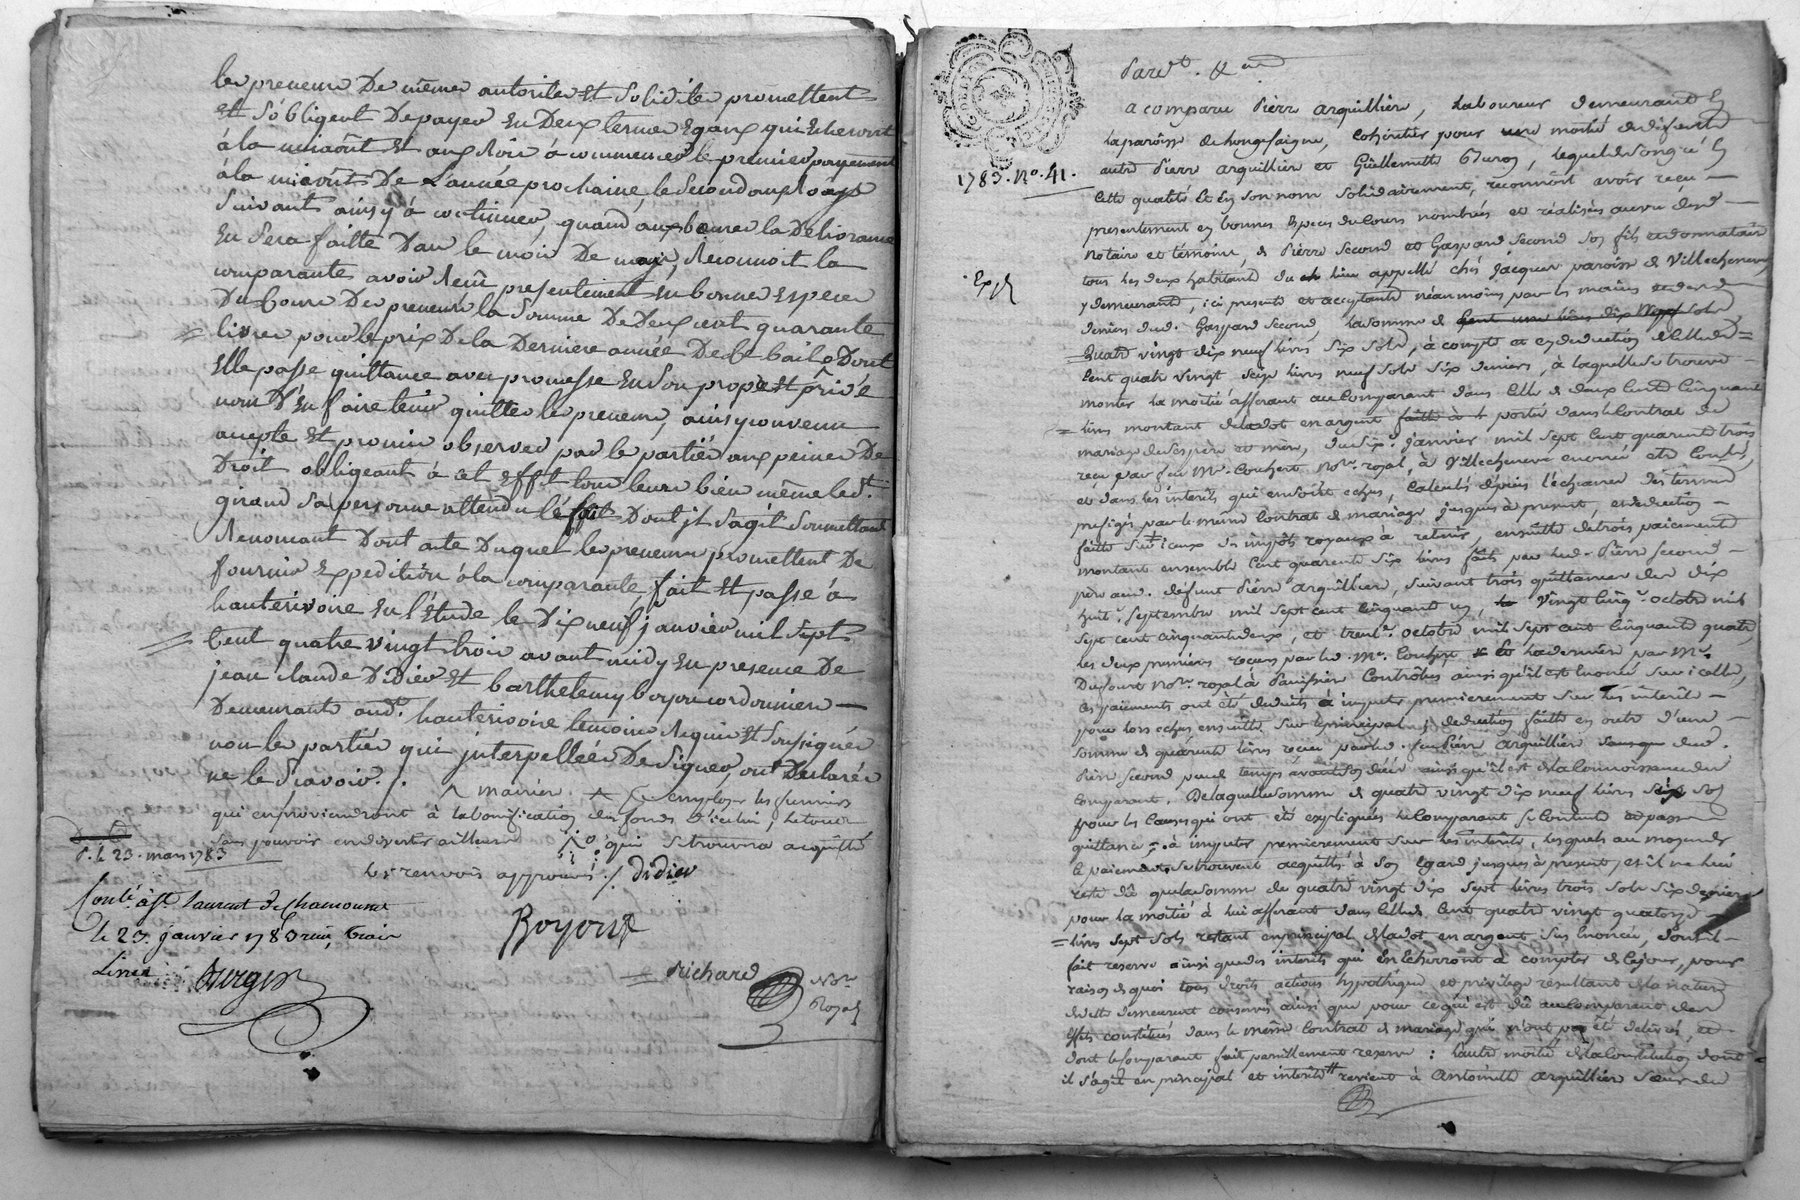 les preneurs De même autorité et solidité promettent
et s'obligent Depayer en Deux termes Egaux qui Echeront
à la miaôut et aux Rois à commencer le premier payement
à la miaôuts De L'année prochaine, le second aux Roys
suivant ainsy à continuer, quand aux beures la Delivrance
En sera faitte Dans le mois De may, Reconnoit la
comparante avoir Reçû presentement en bonnes Especes
Du Cours Des preneurs la Somme De Deux cent quarante
livres pour le prix De la Derniere année De bail Dont
Elle passe quittance avec promesse En son propre et privé
nom D'En faire tenir quitte les preneurs, ainsy convenu
accepté et promis observer par les parties aux peines De
Droit obligeant à cet Effet tous leurs biens même led.t
girand sa personne attendu le fait Dont il s'agit soumettant
Renoncant Dont acte Duquel les preneurs promettent De
fournir Expedition à la comparante, fait et passé à
hauterivoire en l'étude le Dix neuf janvier mil sept
Cent quatre vingt trois avant midy En presence De
jean claude Didier et barthelemy boyon cordonnier
Demeurants aud.t hauterivoire temoins Requis et soussignés
non les parties qui interpellées De signer ont Declarés
ne le sçavoir ./.
employer les fumiers
qui en proviendront à la bonification des fonds d'icelui, le tout
sans pouvoir en divertir ailleurs qui se trouvera acquitté
les renvois approuvés ./. Didier
P. le 23. mars 1783
Conté à St. Laurent de Chamousset
le 23. janvier 1783 reçu trois
Livres
BOYOUX
Richard Nore
Royal
Pardt. &ca
1783. No. 41.
Exp.
a comparu Pierre arquillière, Laboureur demeurant en
la paroisse de Longesaigne, Cohéritier pour une moitié de défunts
autre Pierre arquillier et Guillemette , lequel de son gré en
cette qualité et en son nom solidairement, reconnoit avoir reçu
presentement en bonnes Especes du Cours nombrés et réalisés au vu desd.
Notaire et témoins, de Pierre Second et Gaspard Second son fils et donnataire
tous les deux habitant du lieu appellé chés jacques paroisse de Villechenève,
y demeurants, ici presents et acceptants néanmoins par les mains et des
deniers dud. Gaspard Second, la somme de
quatre vingt dix neuf livres six sols, à compte et en deduction de celle de
Cent quatre vingt seize livres neuf sols six deniers, à laquelle se trouve
monter la moitié afferant au Comparant dans celle de deux Cent Cinquante
livres montant de la dot en argent porté dans le Contrat de
mariage de ses père et mère, du six. janvier mil sept Cent quarante trois
reçu par feu Me. Couhert Nore. royal, à Villecheneve
et dans les intérêts qui en sont echus, calculés depuis l'échéance des termes
prefigés par le même Contrat de mariage jusques à present, et deduction
faitte sur iceux des impôts royaux à retenir, ensuitte de trois paiements
montant ensemble Cent quarante six livres faits par led. Pierre second
père aud. défunt Pierre arquillier, suivant trois quittances des dix
huit. Septembre mil sept cent cinquante un, vingt cinq. octobre mil
sept cent cinquante deux, et trent. octobre mil sept cent cinquante quatre
les deux premieres reçues par led. Me. Couhert et la derniere par Me.
Dufournt Nore. royal à Panissière Contrôlées ainsi qu'il est énoncé sur icelles,
les paiements ont été deduits à imputer premierement sur les interêts
pour lors echus ensuitte sur le principal; deduction faitte en outre d'une
somme de quarante livres reçue par led. feu Pierre arquillier
Pierre second peu de temps avant son décès ainsi qu'il est de la connoissance du
Comparant. De laquelle somme de quatre vingt dix neuf livres six sols
pour les Causes qui ont été expliquées le Comparant se contente et passe
quittance à imputer premierement sur les intérêts, lesquels au moyen de
ce paiement se trouvent acquittés à son égard jusques à present, et il ne lui
reste dû que la somme de quatre vingt dix sept livres trois sols six deniers
pour la moitié à lui afferant dans celle de Cent quatre vingt quatorze
livres sept sols restant en principal de la dot en argent sus énoncée, dont il
fait reserve ainsi que des intérêts qui en Echerront à compter de ce jour, pour
raison de quoi tous droits actions hypothèque et privilège résultant de la nature
de dette demeurent conservés ainsi que pour ce qui est dû au comparant des
effets constitués dans le même Contrat de mariage qui n'ont pas été délivrés, et
dont le comparant fait pareillement reserve : l'autre moitié de la Constitution dont
il s'agit en principal et intérêts revient à Antoinette arquillier sœur du